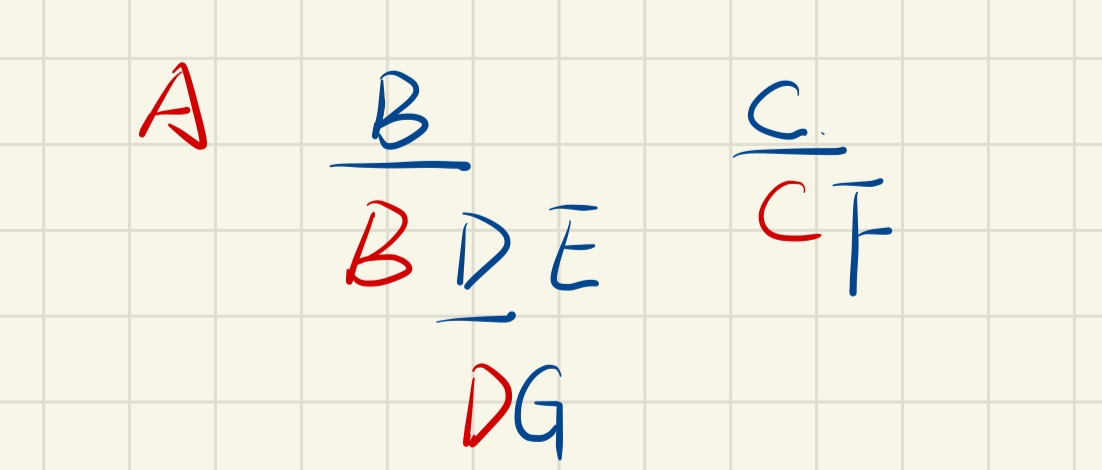 A B C.
B D E C F
D G